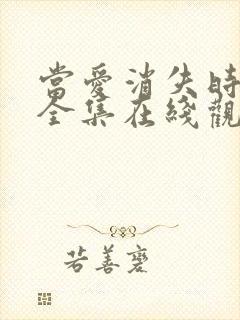 當愛消失時
全集在綫觀
若善薆